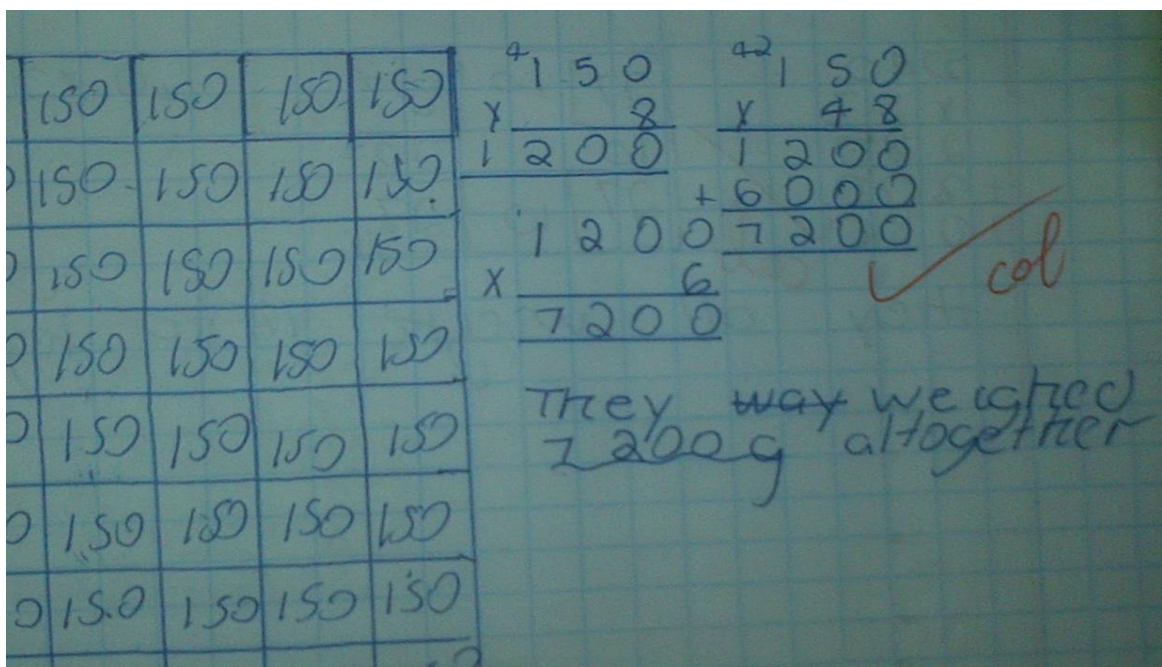 150 150 150 150
150 150 150 150
150 150 150 150
150 150 150 150
150 150 150 150
150 150 150 150
150 150 150 150
4
150
x 8
1200
1200
x 6
7200
42
150
x 48
1200
+ 6000
7200
col
They way weighed
7200g altogether